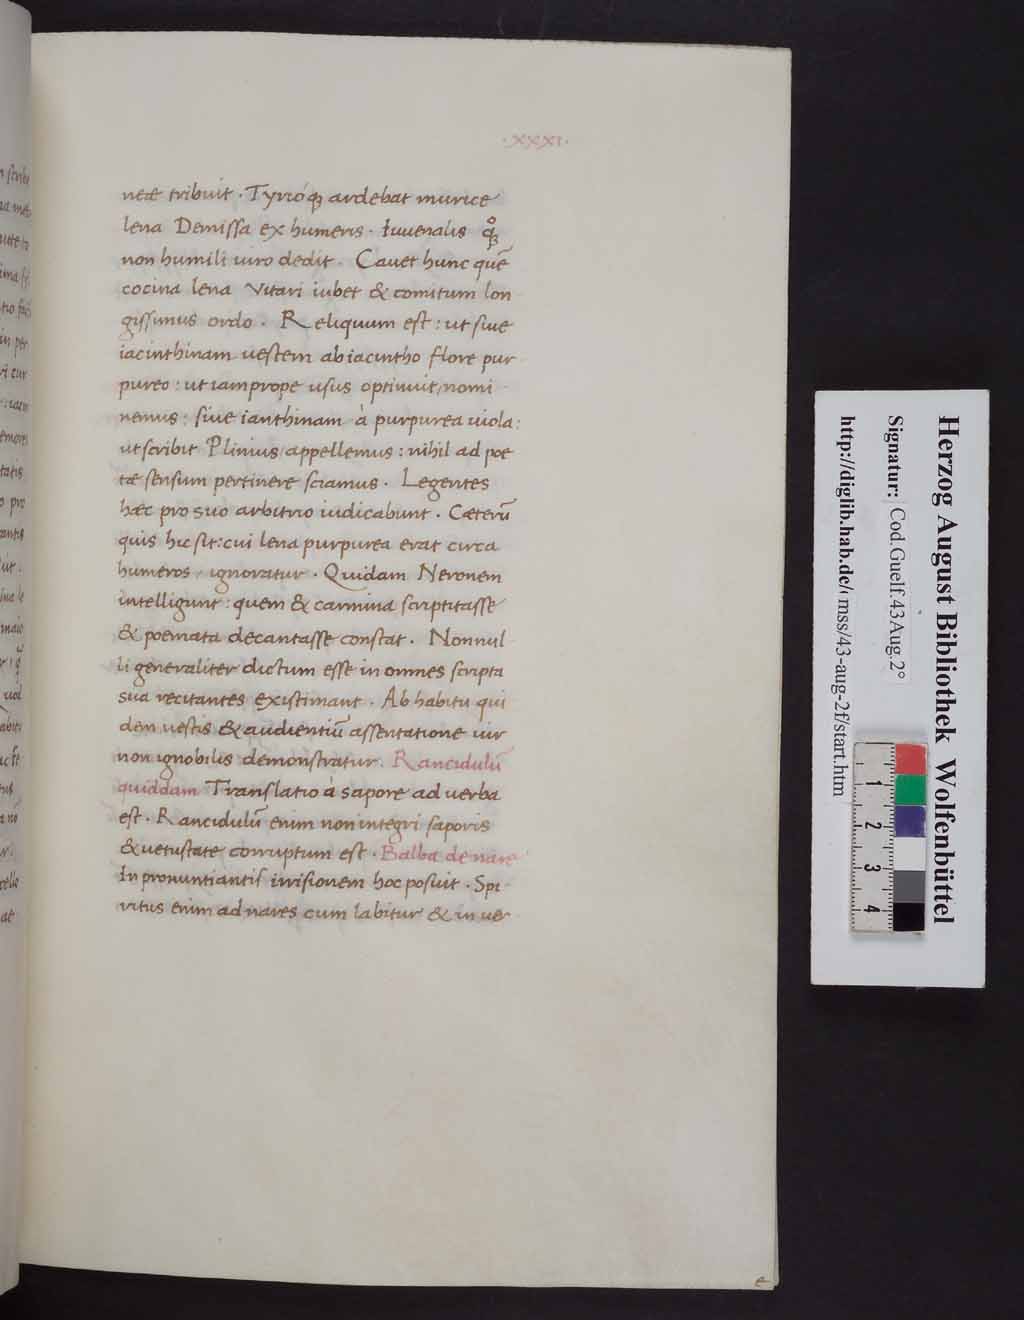 ·XXXI·
neæ tribuit · Tyrióq; ardebat murice
lena Demissa ex humeris · Iuuenalis qͦꝫ
non humili uiro dedit · Cauet hunc quē
cocina lena Vitari iubet & comitum lon
gissimus ordo · Reliquum est : ut siue
iacinthinam uestem ab iacintho flore pur
pureo : ut iam prope usus optinuit, nomi
nemus : siue ianthinam à purpurea uiola :
ut scribit Plinius appellemus : nihil ad poe
tæ sensum pertinere sciamus · Legentes
hæc pro suo arbitrio iudicabunt · Cæterū
quis hic sit : cui lena purpurea erat circa
humeros, ignoratur · Quidam Neronem
intelligunt : quem & carmina scriptitasse
& poemata decantasse constat · Nonnul
li generaliter dictum esse in omnes scripta
sua recitantes existimant · Ab habitu qui
dem uestis & audientiū assentatione uir
non ignobilis demonstratur. Rancidulū
quiddam Translatio à sapore ad uerba
est · Rancidulū enim non integri saporis
& uetustate corruptum est · Balba de nare
In pronuntiantis irrisionem hoc posuit · Spi
ritus enim ad nares cum labitur & in uer
e
Herzog August Bibliothek Wolfenbüttel
Signatur: Cod.Guelf.43 Aug.2°
http://diglib.hab.de/ mss/43-aug-2f/start.htm
1 2 3 4